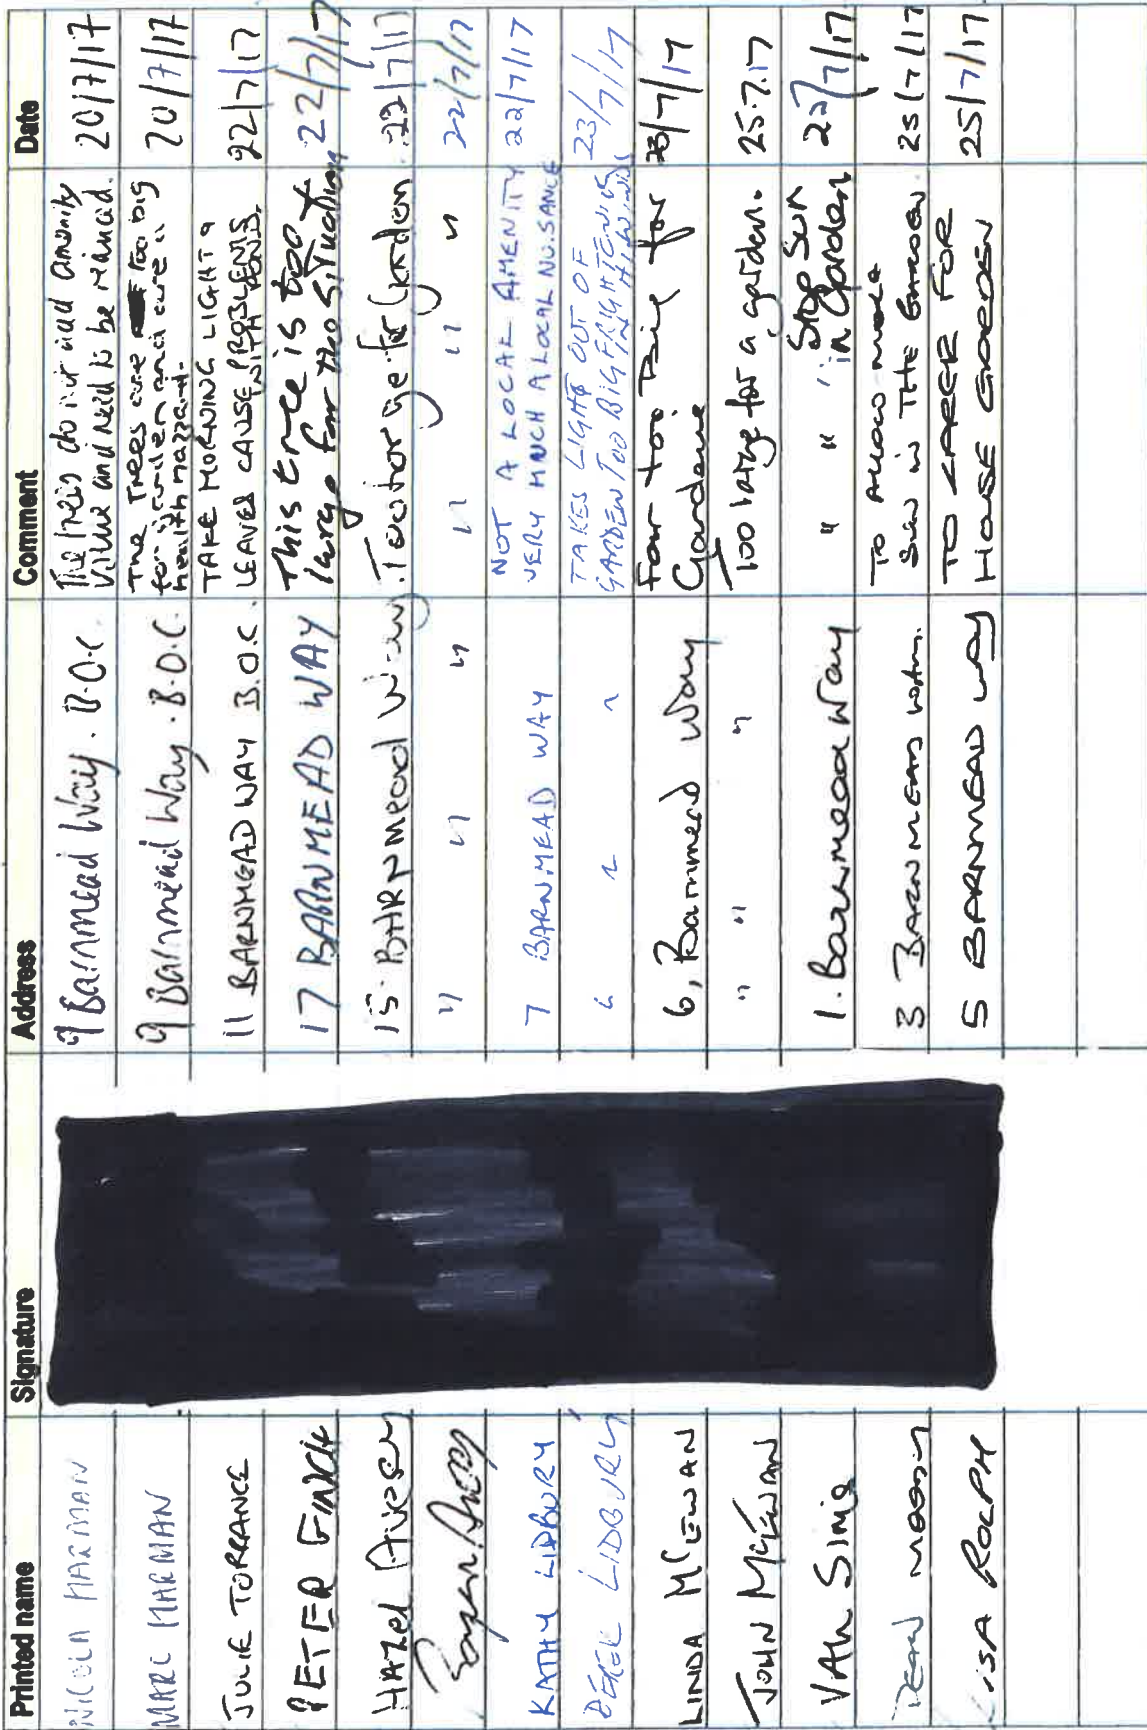 Printed name Signature Address Comment Date
NICOLA HARMAN 9 Barnmead Way. B.O.C. The trees do not add amenity 20/7/17
value and need to be reduced.
MARC HARMAN 9 Barnmead Way. B.O.C. The Trees are too big 20/7/17
for garden and are a
health hazzard.
JULIE TORRANCE 11 BARNMEAD WAY B.O.C. TAKE MORNING LIGHT & 22/7/17
LEAVES CAUSE PROBLEMS
WITH
PETER FINCH 17 BARNMEAD WAY This tree is too 22/7/17
large for the situation
Hazel Avery 15 BARNMEAD Way Too large for Garden 22/7/17
" " " " " " 22/7/17
KATHY LIDBURY 7 BARNMEAD WAY NOT A LOCAL AMENITY 22/7/17
VERY MUCH A LOCAL NUISANCE
DEREK LIDBURY " " " TAKES LIGHT OUT OF 23/7/17
GARDEN TOO BIG FRIGHTENING
IN HI WINDS
LINDA McEWAN 6, Barnmead Way Far too Big for 23/7/17
Gardens
JOHN McEWAN " " " Too large for a garden. 25.7.17
VAL Sims 1. Barnmead Way " " " Stop Sun 22/7/17
in Garden
DEAN 3 BARNMEAD WAY. TO ALLOW MORE 25/7/17
SUN IN THE GARDEN.
LISA ROLPH 5 BARNMEAD WAY TO LARGE FOR 25/7/17
HOUSE GARDEN